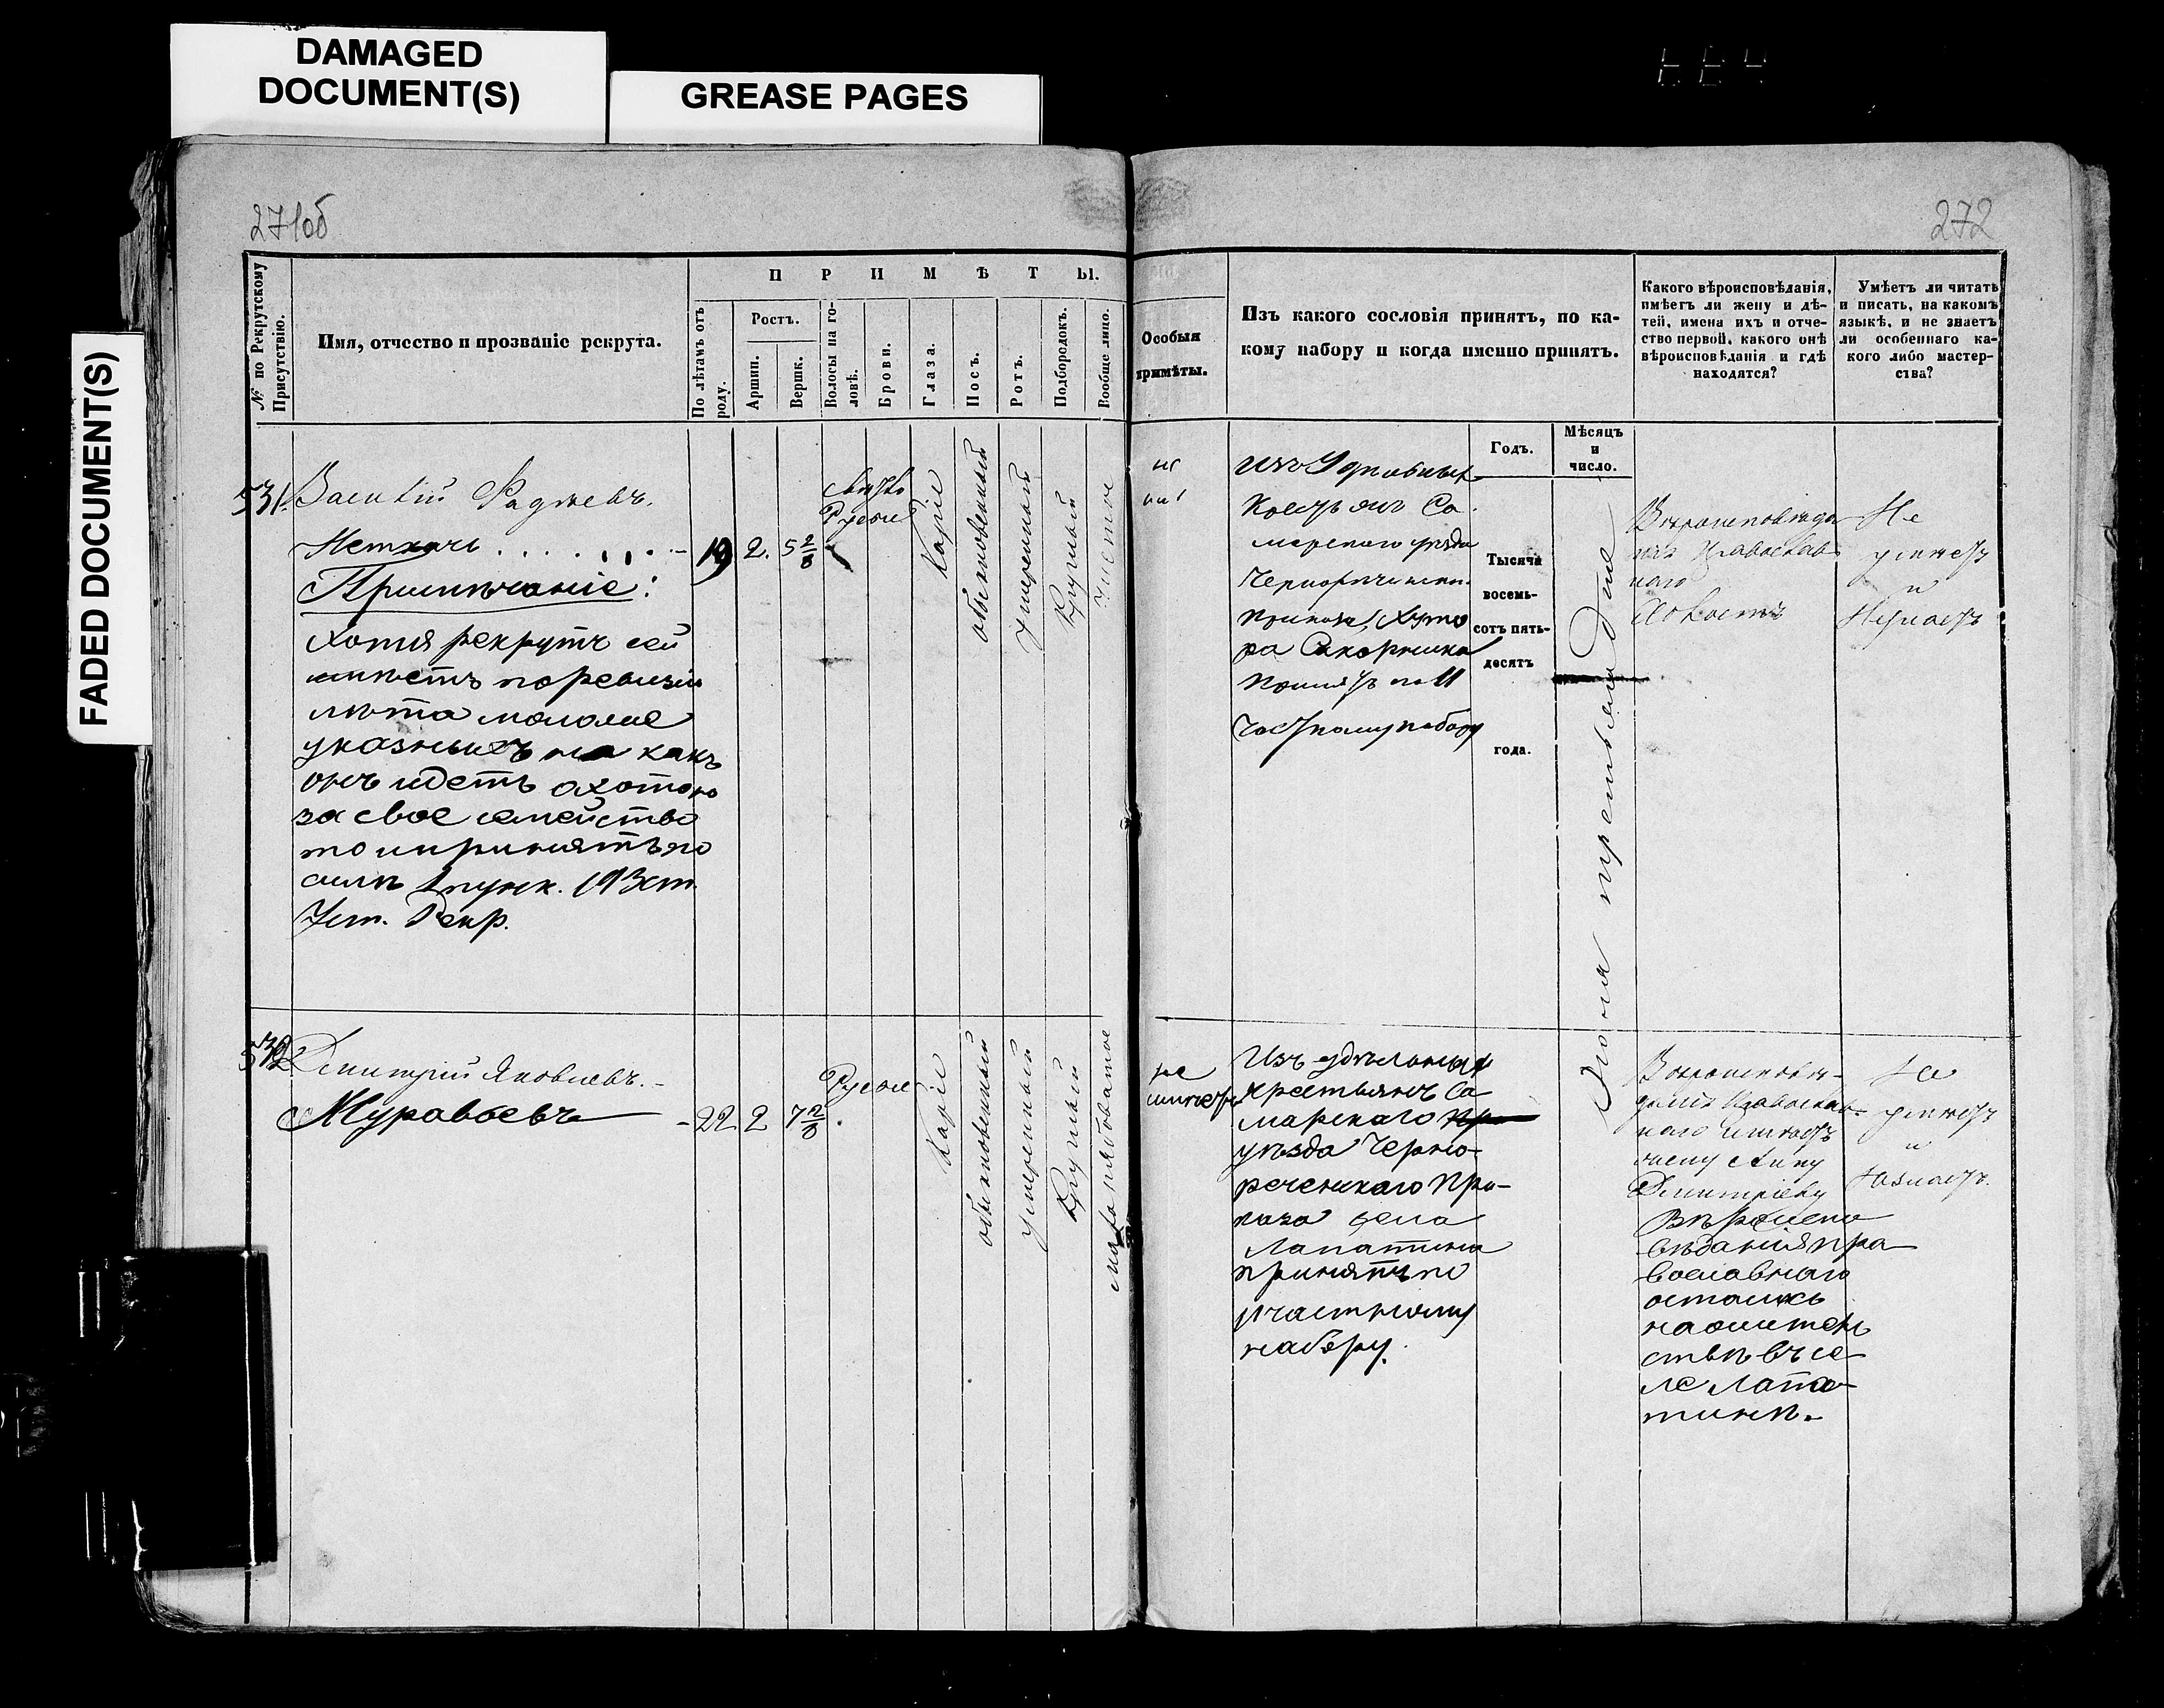 DAMAGED
DOCUMENT(S)
GREASE PAGES
FADED DOCUMENT(S)
271об
272
№ по Рекрутскому
Присутствію.
Имя, отчество и прозваніе рекрута.
ПРИМѢТЫ.
По лѣтамъ отъ
роду.
Ростъ.
Аршин.
Вершк.
Волосы на го-
ловѣ.
Брови.
Глаза.
Носъ.
Ротъ.
Подбородокъ.
Вообще лицо.
Особыя
примѣты.
Изъ какого сословія принятъ, по ка-
кому набору и когда именно принятъ.
Какого вѣроисповѣданія,
имѣетъ ли жену и дѣ-
тей, имена ихъ и отче-
ство первой, какого онѣ
вѣроисповѣданія и гдѣ
находятся?
Умѣетъ ли читать
и писать, на какомъ
языкѣ, и не знаетъ
ли особеннаго ка-
кого либо мастер-
ства?
Годъ.
Мѣсяцъ
и
число.
531.
Василій
19 2. 5 2/8
Русые
Каріе
обыкновенный
умеренный
Круглый
Чистое
Примѣчаніе:
Хотя рекрутъ сей
имѣетъ по ревизіи
лѣта моложе
указныхъ но какъ
онъ идетъ охотою
за свое семейство
то и принятъ по
силѣ пунк. 193 ст.
Уст. Рекр.
Изъ Удѣльныхъ
Крестьянъ Са-
марскаго уѣзда
Чернорѣченск.
Приказа Хуто
ра
Принятъ по 11
частному набору
Тысяча
восемь-
сотъ пять-
десятъ
года.
Вѣроисповѣда
нія Православ
наго
Холостъ
Не
умѣетъ
и
Незнаетъ
532
Дмитрій Яковлевъ.
Муравьевъ
22 2 7 2/8
Русые
Каріе
обыкновенный
умеренный
Круглый
не
имѣетъ
Изъ удѣльныхъ
крестьянъ Са
марскаго
уѣзда Черно-
реченскаго При-
каза села
Лапатина
принятъ по
11 частному
набору.
Вѣроисповѣ-
данія Православ-
наго имѣетъ
жену Анну
Дмитріеву
Вѣроиспо
вѣданія пра
вославнаго
осталась
на жител
ствѣ въ се
ле Лапа-
тинѣ.
Не
умѣетъ
и
Незнаетъ.